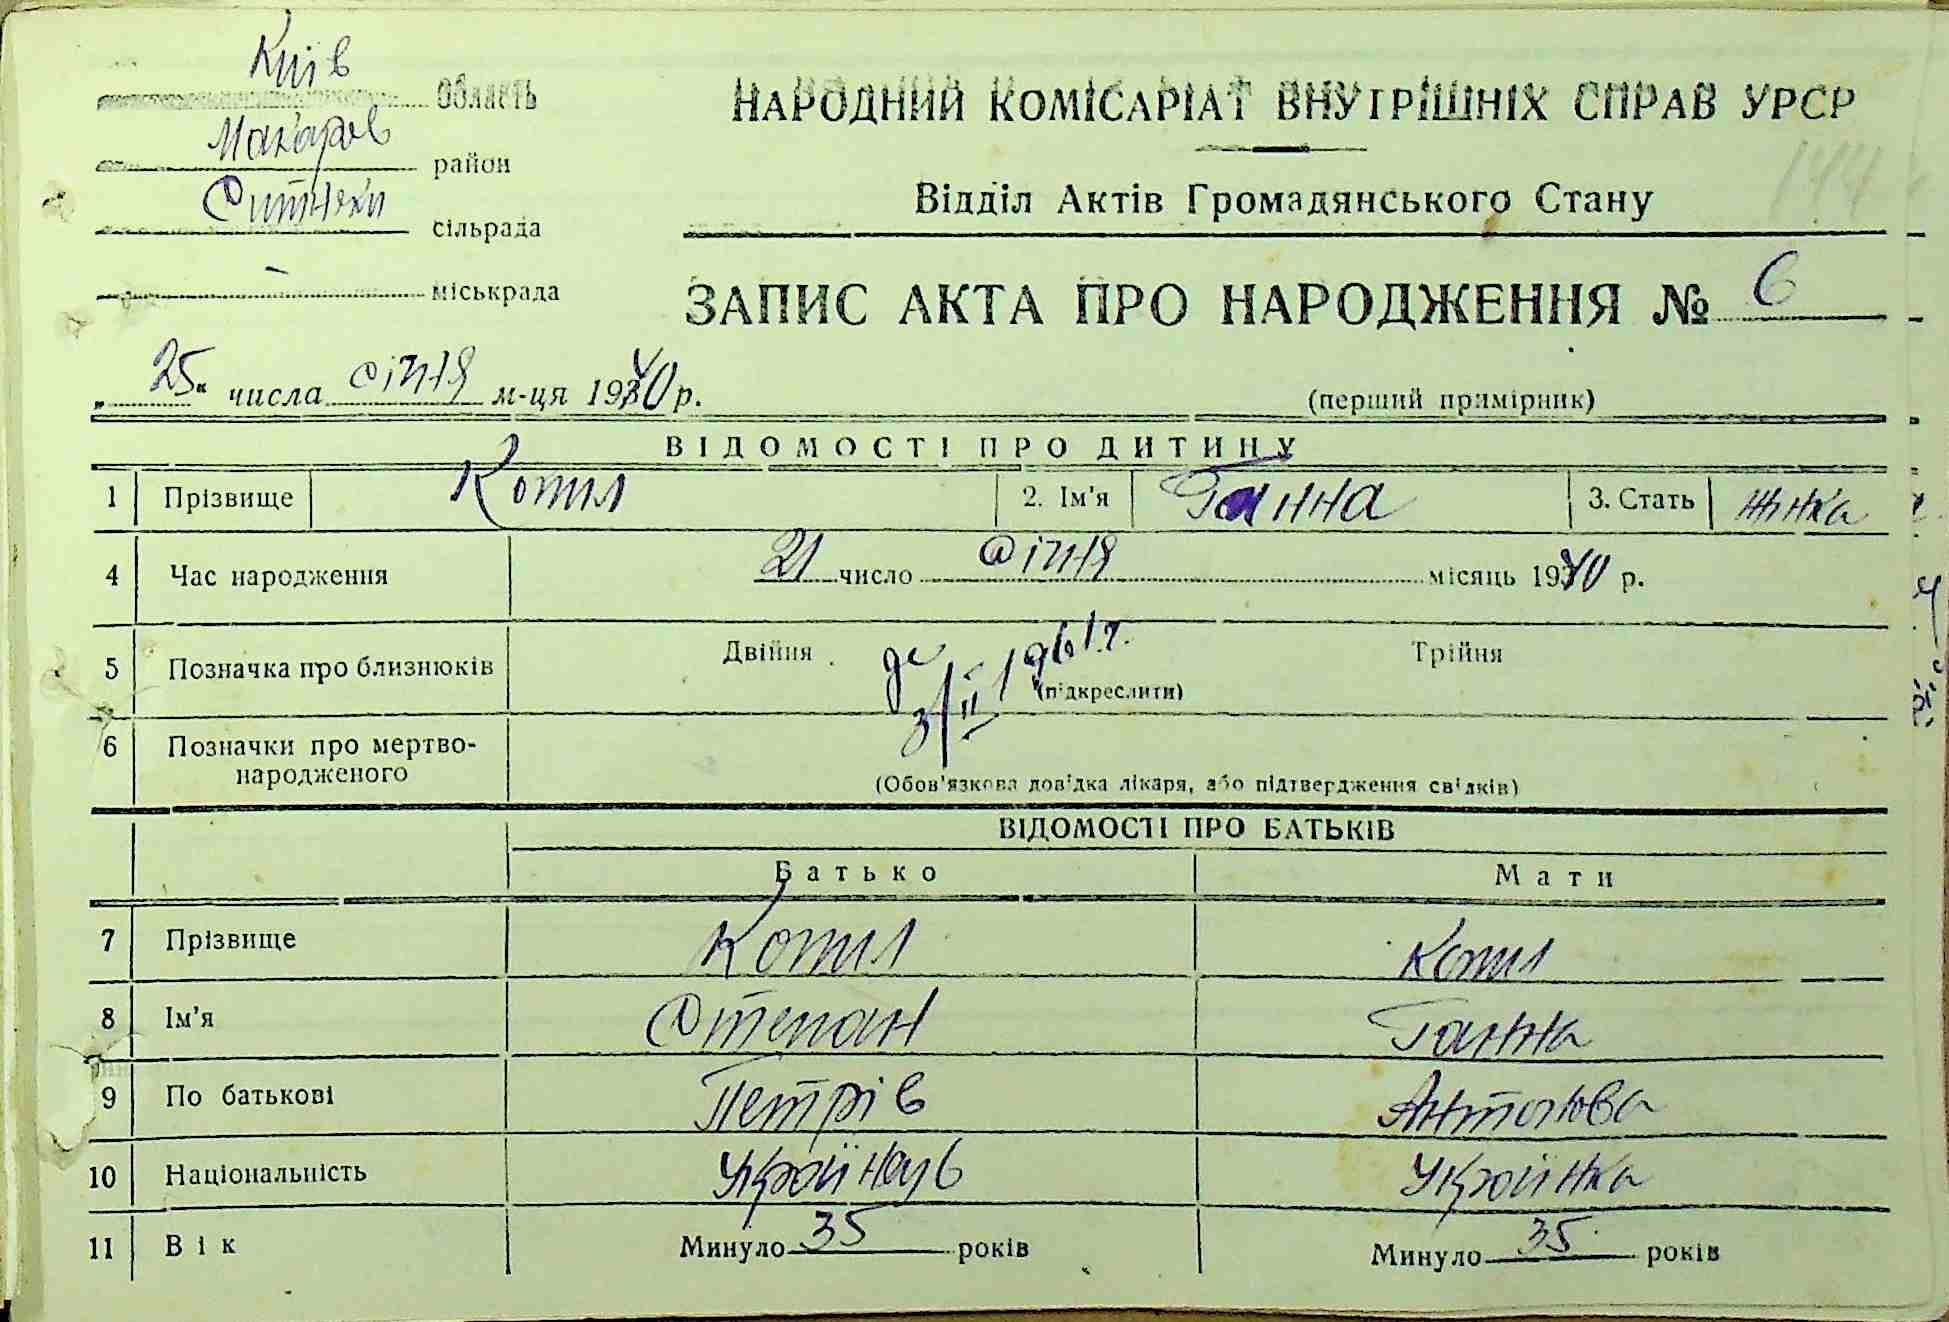 Київ область
Макаров район
Ситняки сільрада
міськрада
НАРОДНИЙ КОМІСАРІАТ ВНУТРІШНІХ СПРАВ УРСР
Відділ Актів Громадянського Стану
144
ЗАПИС АКТА ПРО НАРОДЖЕННЯ № 6
„25“ числа січня м-ця 1940 р.
(перший примірник)
ВІДОМОСТІ ПРО ДИТИНУ
1 Прізвище Котил 2. Ім’я Ганна 3. Стать жінка
4 Час народження 21 число січня місяць 1940 р.
5 Позначка про близнюків Двійня Трійня
(підкреслити)
3/II 1961 г.
6 Позначки про мертво-
народженого
(Обов’язкова довідка лікаря, або підтвердження свідків)
ВІДОМОСТІ ПРО БАТЬКІВ
Батько Мати
7 Прізвище Котил Котил
8 Ім’я Степан Ганна
9 По батькові Петрів Антонова
10 Національність Українець Українка
11 Вік Минуло 35 років Минуло 35 років